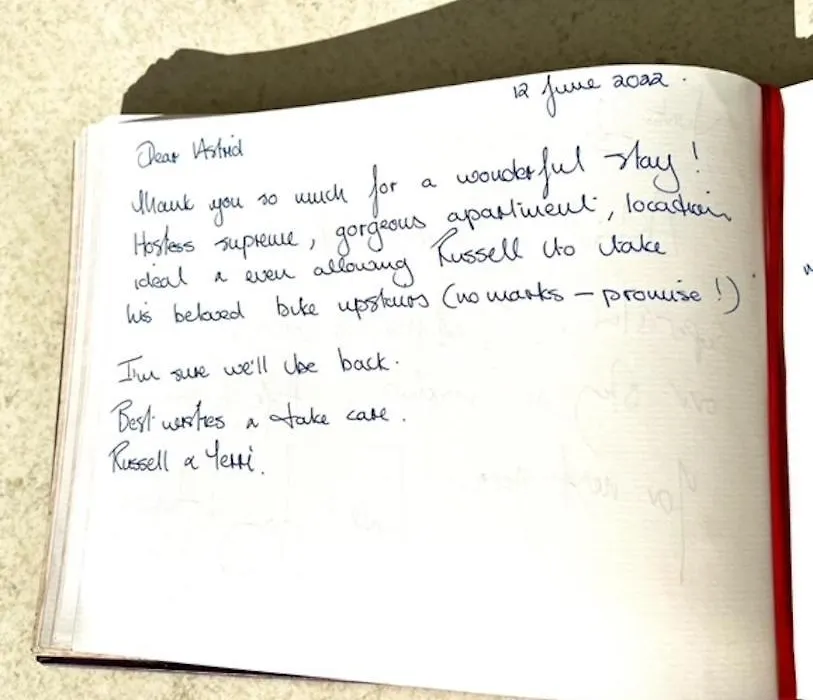 12 June 2022.
Dear Astrid
Thank you so much for a wonderful stay!
Hostess supreme, gorgeous apartment, location
ideal & even allowing Russell to take
his beloved bike upstairs (no marks – promise!)
I'm sure we'll be back.
Best wishes & take care.
Russell & Terri.